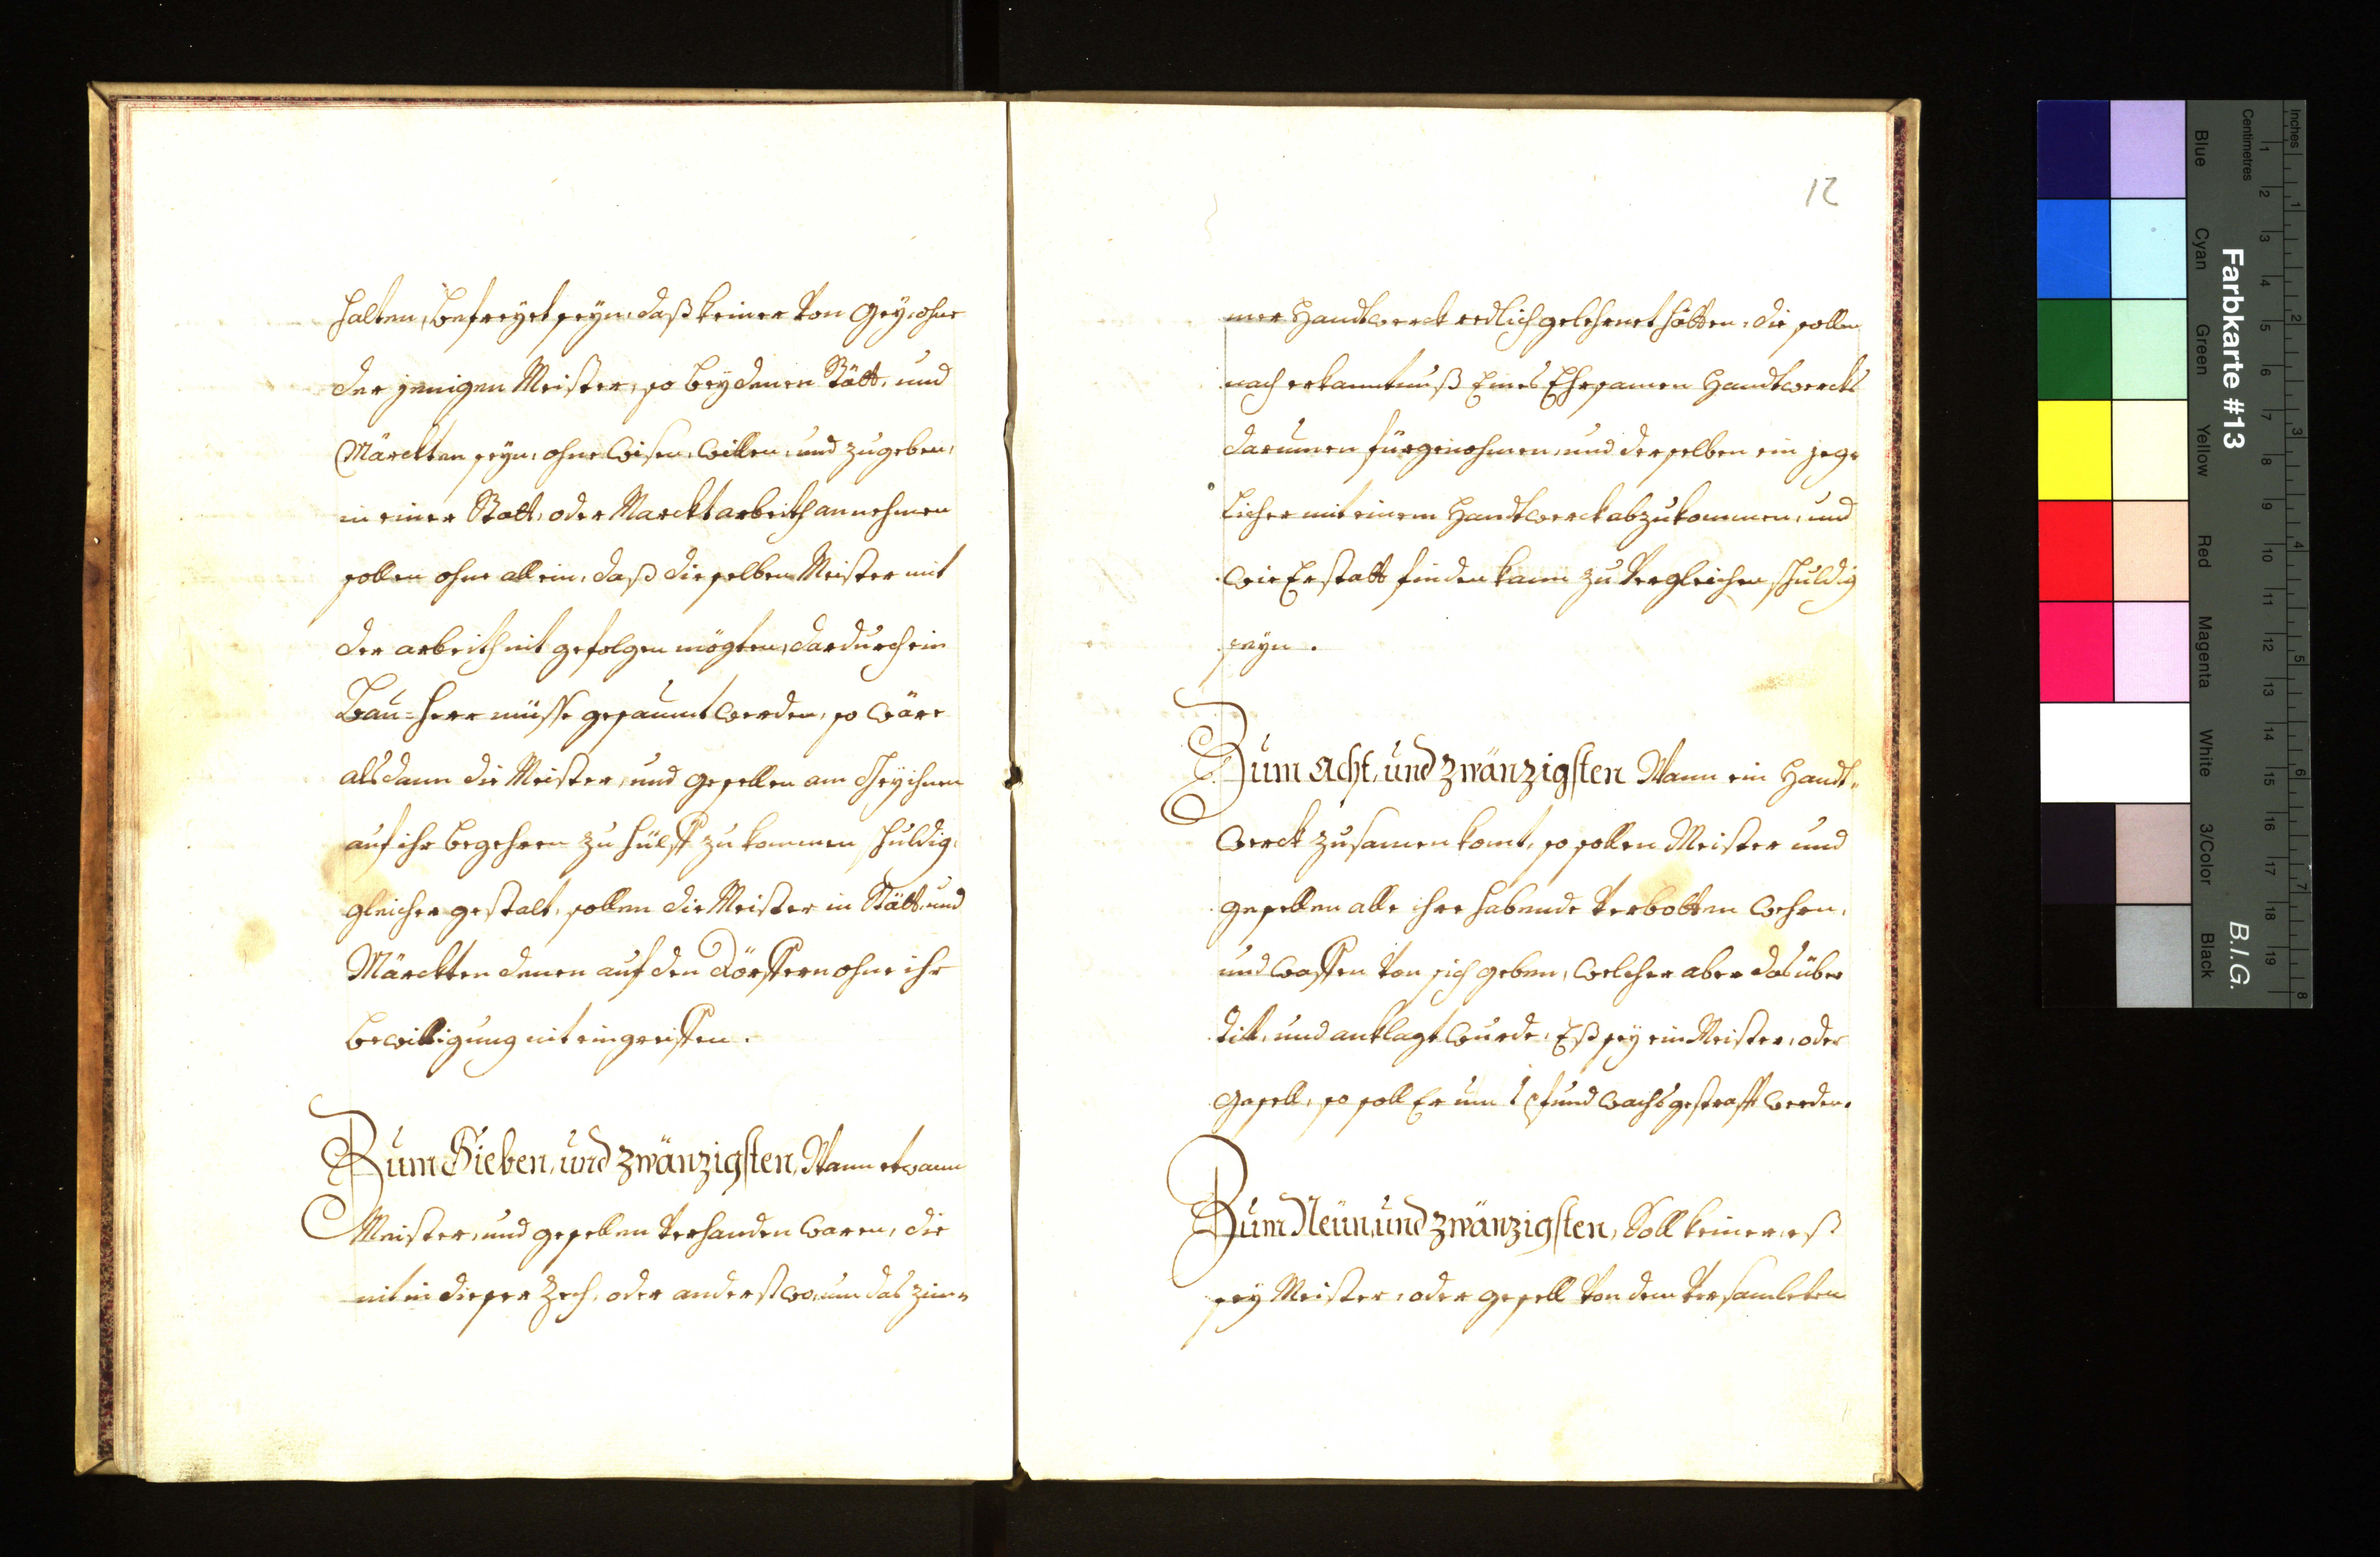 halten, befreyet seyn, daß keiner von Gey, ohne
der jenigen Meister, so bey denen Stätt, und
Märckten seyn, ohne wisen, willen, und zugeben,
in einer Statt, oder Marckt arbeith annehmen
sollen ohne allein, daß dieselben Meister mit
der arbeith nit gefolgen mögten, dardurch ein
Bau=herr müsse gesaumt werden, so wäre
alsdann die Meister, und gesellen am Gey ihnen
auf ihr begehren zu hülff zu kommen schuldig,
gleicher gestalt, sollen die Meister in Stätt, und
Märckten denen auf den Dörffern ohne ihr
bewilligung nit eingreiffen.
Zum Sieben, und zwänzigsten, Wann etwann
Meister, und gesellen verhanden waren, die
nit in dieser Zech, oder anderstwo, um das zim=
12
mer Handtwerck redlich gelehrnet hätten, die sollen
nach erkanntnuß Eines Ehrsamen Handtwercks
darumen fürgenohmen, und derselben ein jeg=
licher mit einem Handtwerck abzukommen, und
wie Er statt finden kann zu vergleichen schuldig
seyn.
Zum Acht, und zwänzigsten Wann ein Handt=
werck zusamen komt, so sollen Meister und
gesellen alle ihre habende verbotten wehrn,
und waffen von sich geben, welcher aber das über
tit, und anklagt wurde, Eß sey ein Meister, oder
gesell, so soll Er um 1 pfund wachs gestrafft werden.
Zum Neün, und zwänzigsten, Soll keiner, eß
sey Meister, oder gesell von dem versamleten
Farbkarte #13
B.I.G.
Inches
Centimetres
Blue Cyan Green Yellow Red Magenta White 3/Color Black
1 2 3 4 5 6 7 8 9 10 11 12 13 14 15 16 17 18 19
1 2 3 4 5 6 7 8